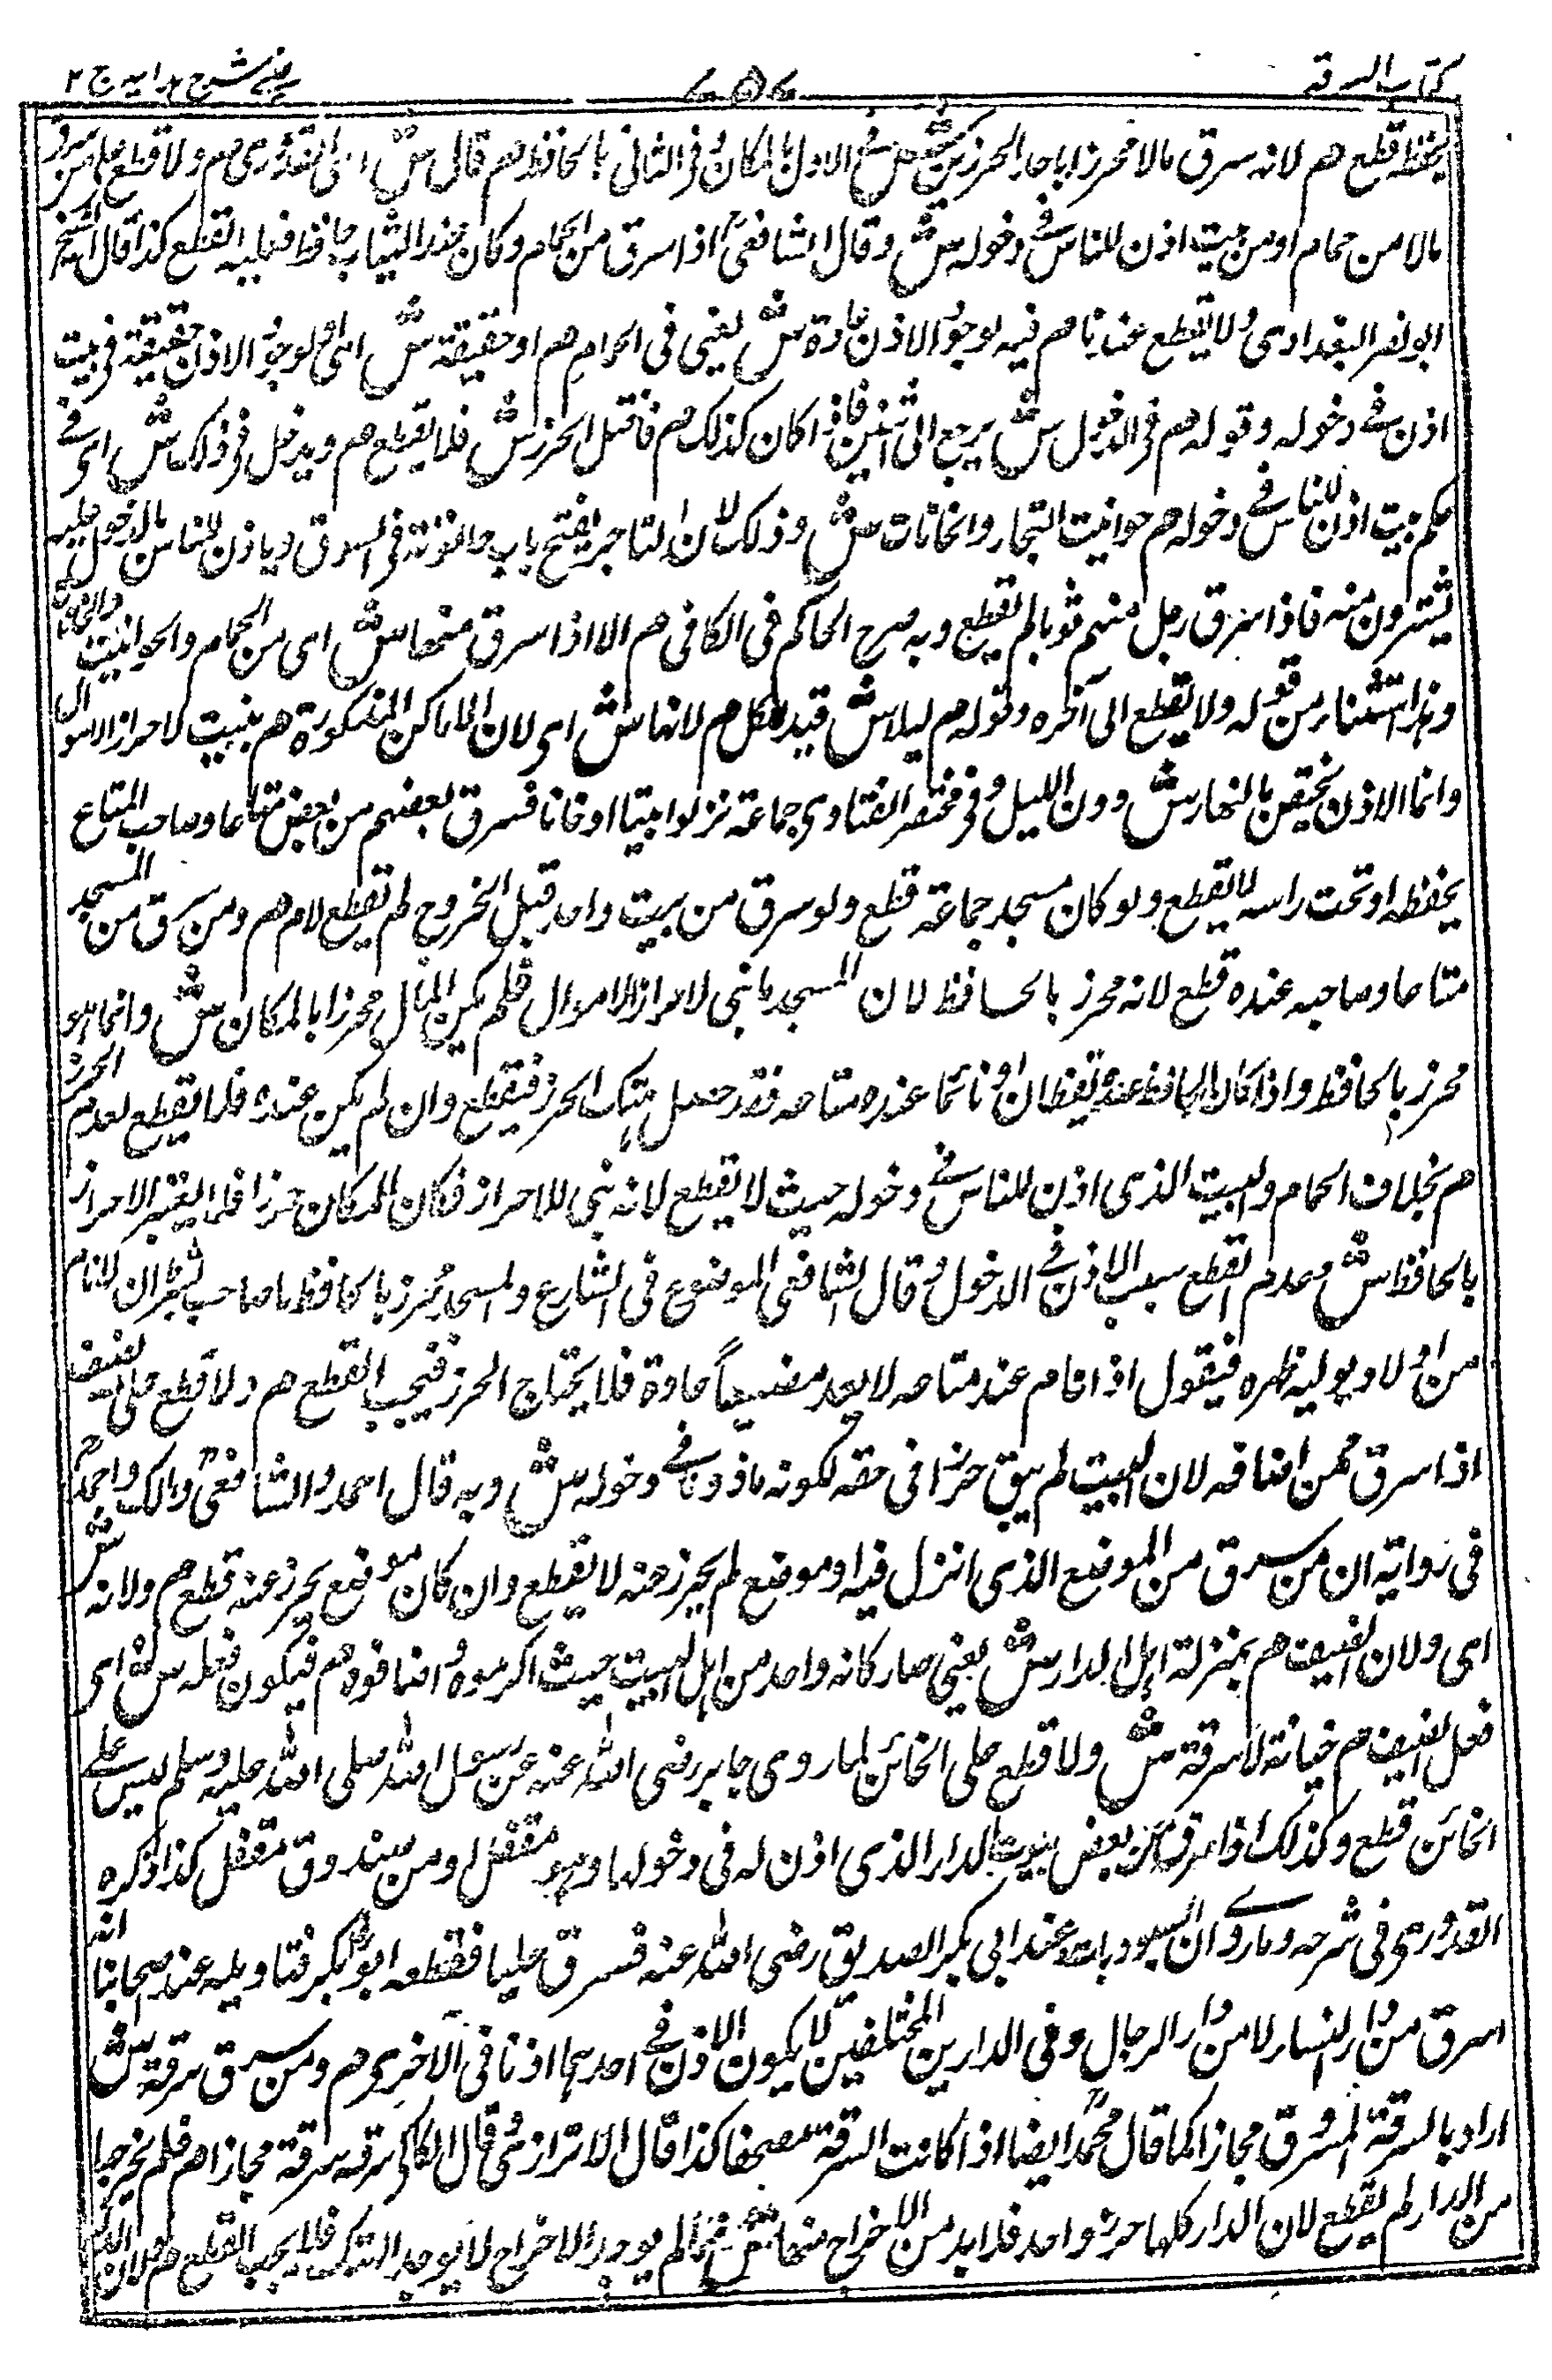 كتاب السرقة
عينى شرح هدايه ج ٢
يحفظه قطع هم لانه سرق مالا محرزا باحد الحرزين ش الاول بالمكان وفى الثانى بالحافظ هم قال ش اى القدورى هم ولا قطع على من سرق
مالا من حمام او من بيت اذن للناس فى دخوله ش وقال الشافعى اذا سرق من الحمام وكان عند الثياب حافظ فعليه القطع كذا قال الشيخ
ابو نصر البغدادى ولا يقطع عندنا هم فيه لوجود الاذن عادة ش يعنى فى الحمام هم او حقيقة ش اى لوجود الاذن حقيقة فى بيت
اذن فى دخوله وقوله هم فى الدخول ش يرجع الى اثنين فاذا كان كذلك هم فاختل الحرز ش فلا يقطع هم ويدخل فى ذلك ش اى فى
حكم بيت اذن للناس فى دخوله هم حوانيت التجار والخانات ش وذلك لان التاجر يفتح باب حانوته فى السوق وياذن للناس بالدخول عليه
يشترون منه فاذا سرق رجل منهم ثوبا لم يقطع وبه صرح الحاكم فى الكافى هم الا اذا سرق منها ش اى من الحمام والحوانيت والخانات
وهذا استثناء من قوله ولا يقطع الى آخره وقوله هم ليلا ش قيد للكل هم لانها ش اى لان الاماكن المذكورة هم بنيت لاحراز الاموال
وانما الاذن يختص بالنهار ش دون الليل وفى مختصر الفتاوى جماعة نزلوا بيتا او خانا فسرق بعضهم من بعض متاعا وصاحب المتاع
يحفظه او تحت راسه لا يقطع ولو كان مسجد جماعة قطع ولو سرق من بيت واحد قبل الخروج لم يقطع لام هم ومن سرق من المسجد
متاعا وصاحبه عنده قطع لانه محرز بالحافظ لان المسجد ما بنى لاحراز الاموال فلم يكن المال محرزا بالمكان ش وانما هو
محرز بالحافظ واذا كان الحافظ عنده يقظان او نائما عنده متاعه فقد حصل هتك الحرز فيقطع وان لم يكن عنده فلا يقطع لعدم الحرز
هم بخلاف الحمام والبيت الذى اذن للناس فى دخوله حيث لا يقطع لانه بنى للاحراز فكان المكان حرزا فلا يعتبر الاحراز
بالحافظ ش وعدم القطع سبب الاذن فى الدخول وقال الشافعى الموضوع فى الشارع والمسجد محرز بالحافظ ما صاحب بشرط ان لا نام
من او لا ويوليه ظهره فيقول اذا نام عند متاعه لا يعد مضيعاً عادة فلا يحتاج الحرز فيجب القطع هم ولا قطع على الضيف
اذا سرق ممن اضافه لان البيت لم يبق حرزا فى حقه لكونه ماذونا فى دخوله ش وبه قال احمد والشافعى ومالك واحمد
فى رواية ان من سرق من الموضع الذى انزل فيه او موضع لم يحرز عنه لا يقطع وان كان موضع يحرز عنه قطع هم ولانه ش
اى ولان الضيف هم بمنزلة اهل الدار ش يعنى صار كانه واحد من اهل البيت حيث اكرموه واضافوه هم فيكون فعله ش اى
فعل الضيف هم خيانة لا سرقة ش ولا قطع على الخائن لما روى جابر رضى الله عنه عن رسول الله صلى الله عليه وسلم ليس على
الخائن قطع وكذلك اذا سرق من بعض بيوت الدار الذى اذن له فى دخولها وهو مقفل او من صندوق مقفل كذا ذكره
القدورى فى شرحه وما روى ان اسود بات عند ابى بكر الصديق رضى الله عنه فسرق حليا فقطعه ابو بكر فتاويله عند اصحابنا انه
سرق من دار النساء لا من دار الرجال وفى الدارين المختلفين لا يكون الاذن فى احدهما اذنا فى الاخرى هم ومن سرق سرقة ش
اراد بالسرقة المسروق مجازا كما قال محمد ايضا اذا كانت السرقة مصحفا كذا قال الاترازى وقال الكاكى سرقه سرقة مجازا هم فلم يخرجها
من الدار لم يقطع لان الدار كلها حرز واحد فلا بد من الاخراج منها ش فما لم يوجد الاخراج لا يوجد الهتك فلا يجب القطع هم ولان الدار